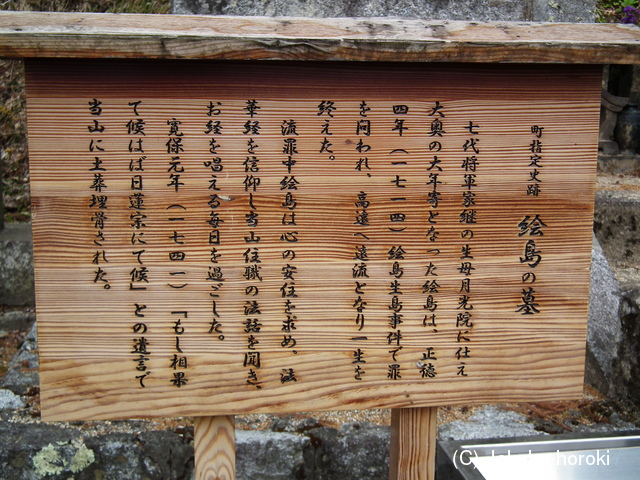 町指定史跡　絵島の墓
七代将軍家継の生母月光院に仕え
大奥の大年寄となった絵島は、正徳
四年（一七一四）絵島生島事件で罪
を問われ、高遠へ遠流となり一生を
終えた。
流罪中絵島は心の安住を求め、法
華経を信仰し当山住職の法話を聞き、
お経を唱える毎日を過ごした。
寛保元年（一七四一）「もし相果
て候はば日蓮宗にて候」との遺言で
当山に土葬埋骨された。